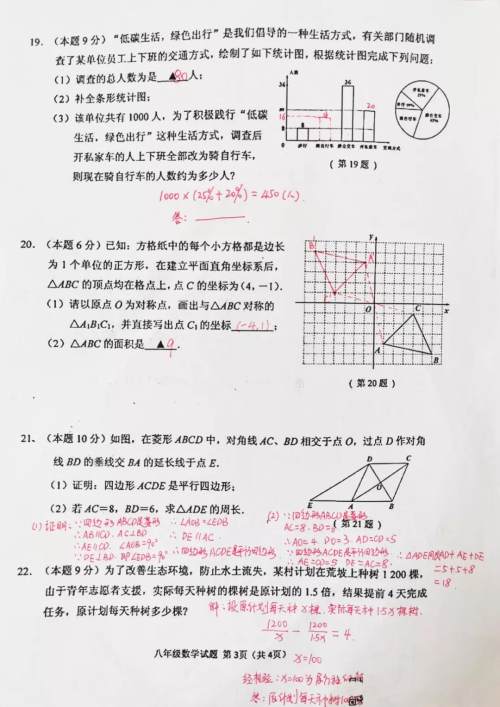 19.（本题9分）“低碳生活，绿色出行”是我们倡导的一种生活方式，有关部门随机调
查了某单位员工上下班的交通方式，绘制了如下统计图，根据统计图完成下列问题：
（1）调查的总人数为是 ▲80 人；
（2）补全条形统计图；
（3）该单位共有1000人，为了积极践行“低碳
生活，绿色出行”这种生活方式，调查后
开私家车的人上下班全部改为骑自行车，
则现在骑自行车的人数约为多少人？
人数
36
20
16
8
0
（第19题）
1000×(25%+20%)=450(人).
答：
20.（本题6分）已知：方格纸中的每个小方格都是边长
为1个单位的正方形，在建立平面直角坐标系后，
△ABC的顶点均在格点上，点C的坐标为(4，−1).
（1）请以原点O为对称点，画出与△ABC对称的
△A₁B₁C₁，并直接写出点C₁的坐标 (-4,1) ；
（2）△ABC的面积是 ▲9 .
y
x
O
A
B
C
（第20题）
21.（本题10分）如图，在菱形ABCD中，对角线AC、BD相交于点O，过点D作对角
线BD的垂线交BA的延长线于点E.
（1）证明：四边形ACDE是平行四边形；
（2）若AC=8，BD=6，求△ADE的周长.
D
C
O
E
A
B
（第21题）
(1) 证明：∵四边形ABCD是菱形
∴AB∥CD. AC⊥BD
∴AE∥CD. ∠AOB=90°
∵DE⊥BD 即∠EDB=90°
∴∠AOB=∠EDB
∴DE∥AC
∴四边形ACDE是平行四边形
(2) ∵四边形ABCD是菱形
AC=8. BD=6
∴AO=4 DO=3. AD=CD=5
∵四边形ACDE是平行四边形
∴AE=CD=5 DE=AC=8.
∴△ADE周长AD+AE+DE
=5+5+8
=18.
22.（本题9分）为了改善生态环境，防止水土流失，某村计划在荒坡上种树1 200棵，
由于青年志愿者支援，实际每天种树的棵树是原计划的1.5倍，结果提前4天完成
任务，原计划每天种树多少棵？
解：设原计划每天种x棵. 实际每天种1.5x棵树.
1200/x − 1200/1.5x = 4.
八年级数学试题 第3页（共4页）
x=100
经检验：x=100为原方程
答：原计划每天种树100